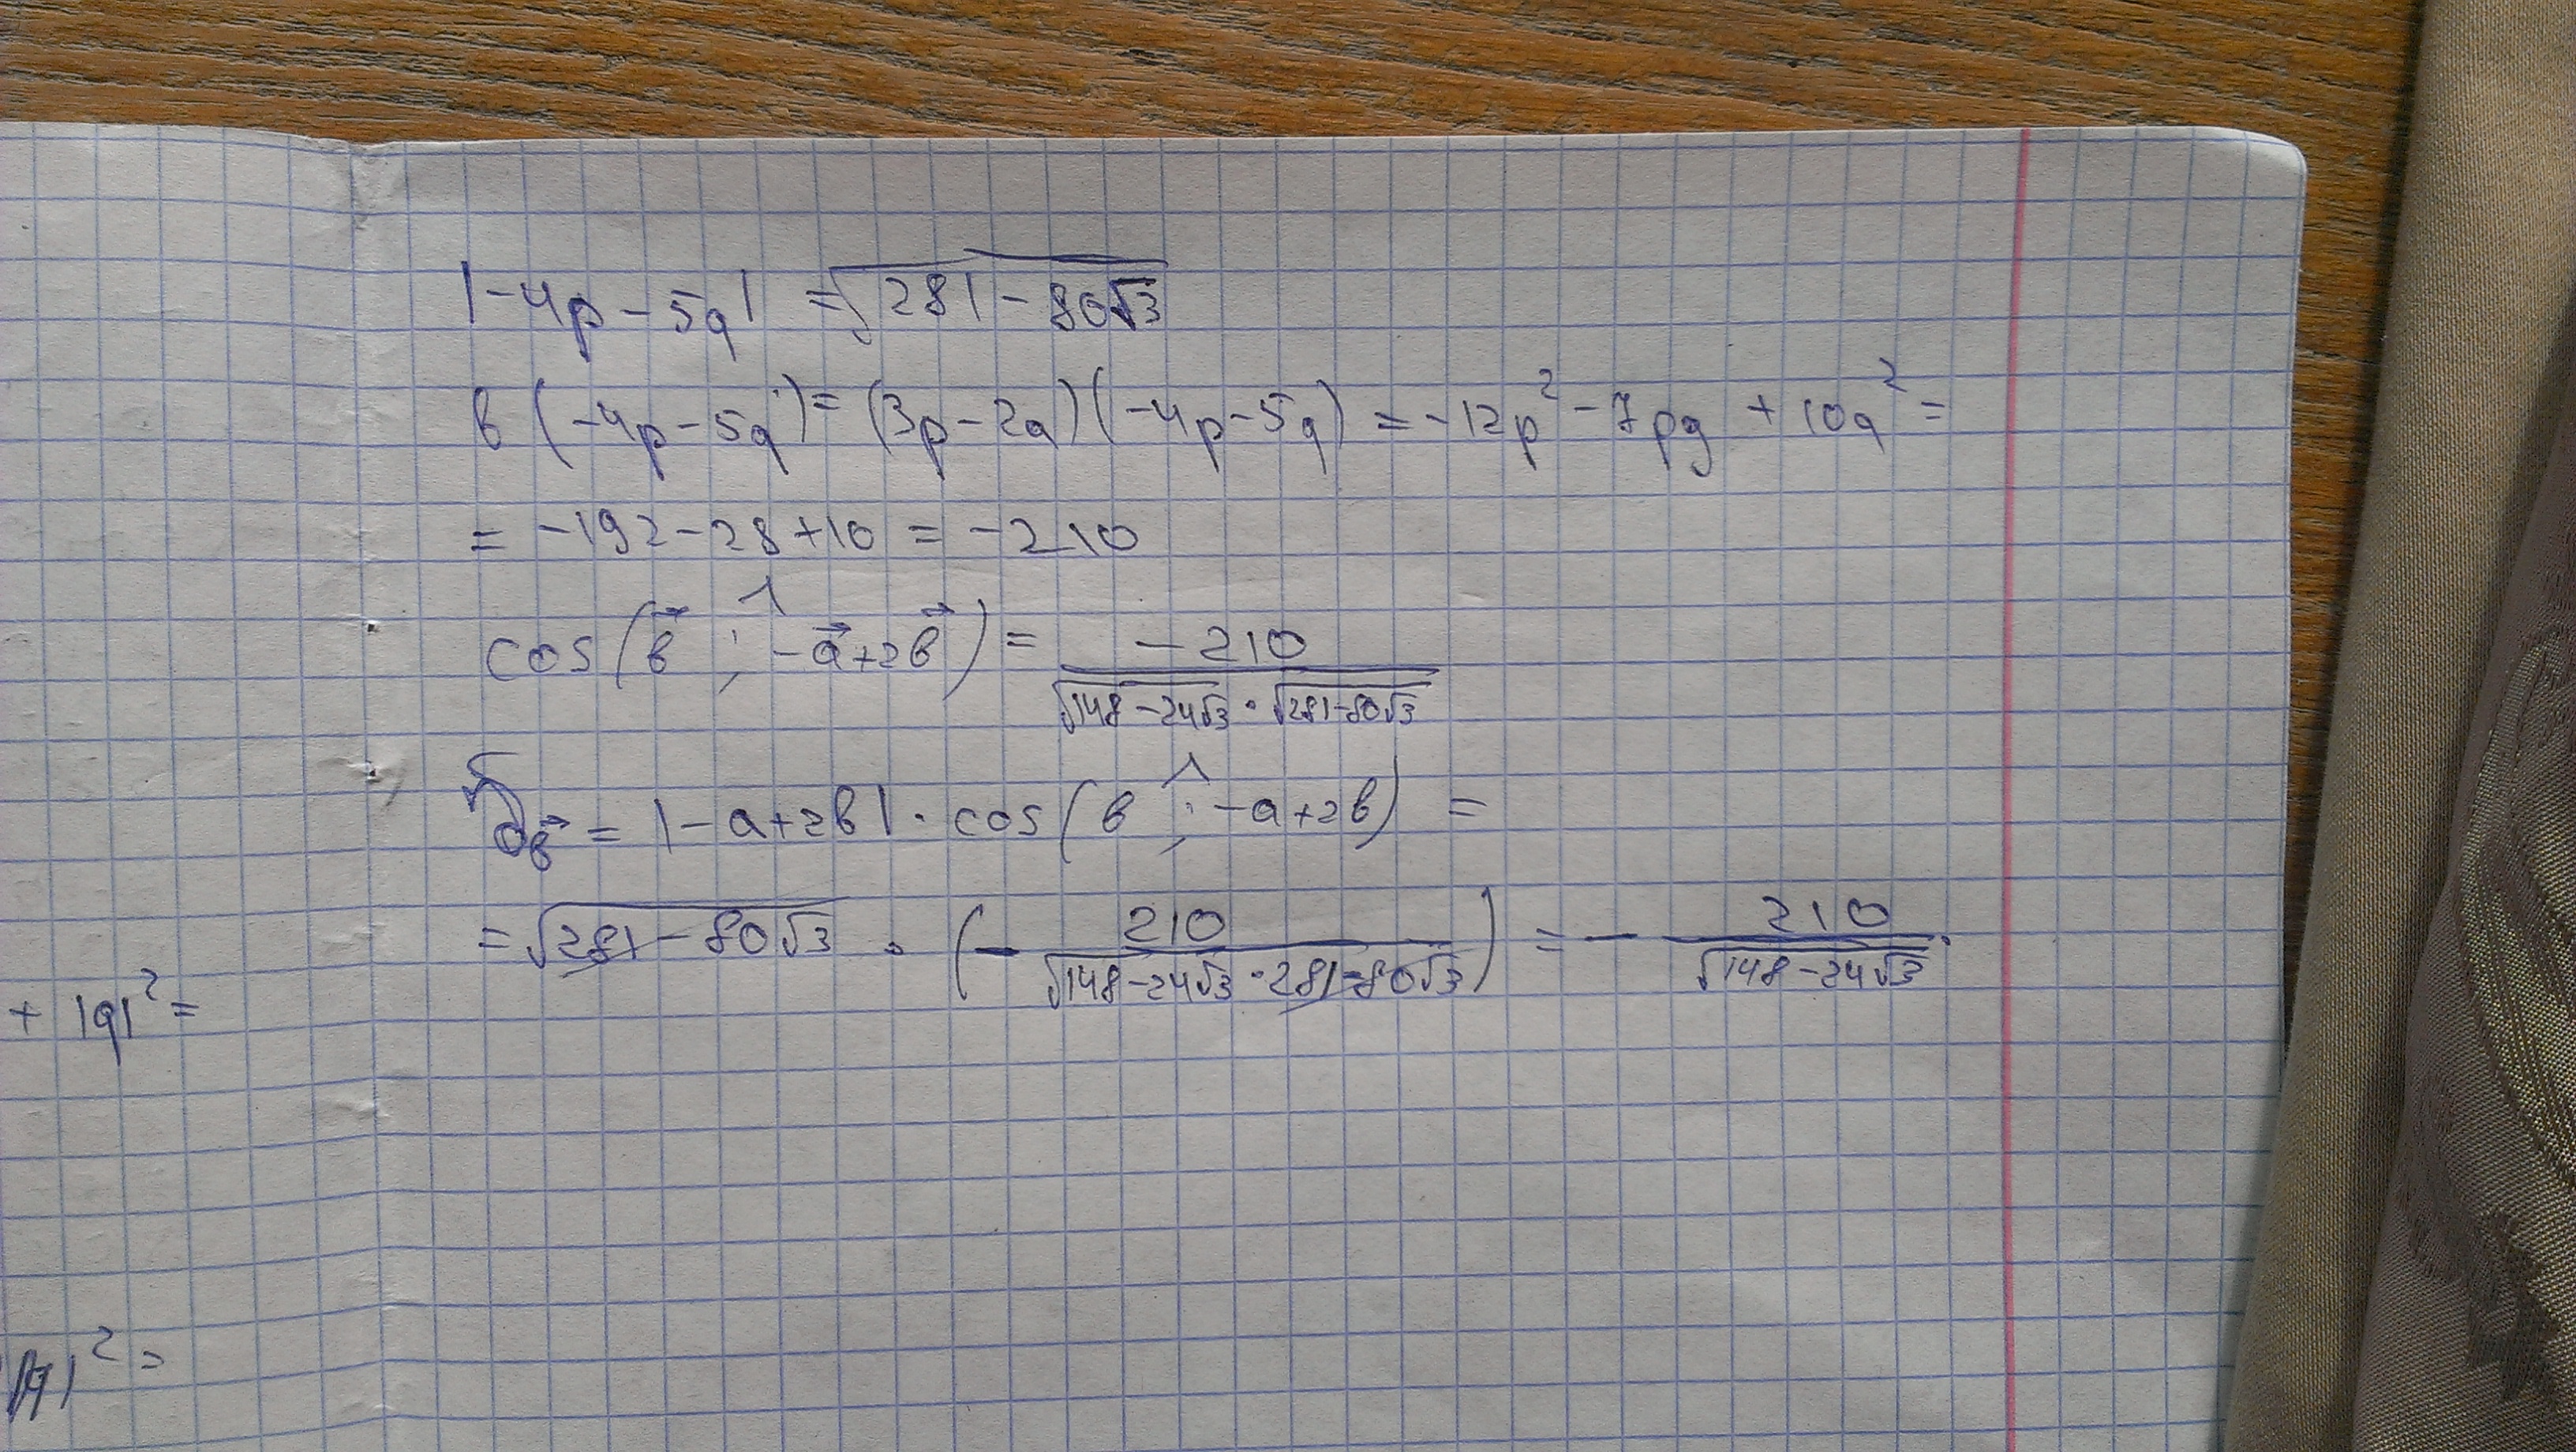 |-4p - 5q| = √281 - 80√3
в (-4p - 5q) = (3p - 2q)(-4p - 5q) = -12p² - 7pq + 10q² =
= -192 - 28 + 10 = -210
cos(в⃗ ; -a⃗+2в⃗) = -210 / √148-24√3 · √281-80√3
∂в⃗ = |-a+2в| · cos(в ; -a+2в) =
= √281 - 80√3 · (- 210 / √148-24√3 · 281-80√3) = - 210 / √148-24√3.
+ |q|² =
|q|² =